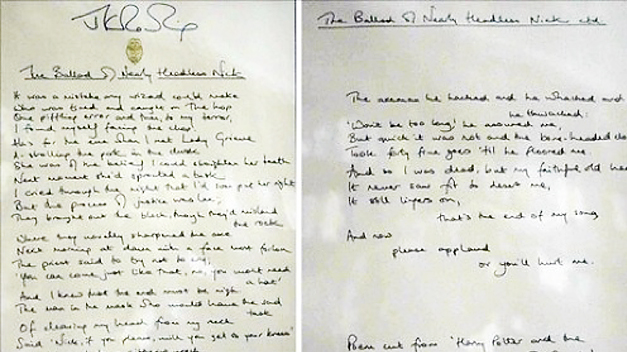 The Ballad of Nearly Headless Nick
It was a mistake any wizard could make
Who was tired and caught on the hop
One piffling error and then, to my terror,
I found myself facing the chop.
Alas for the eve when I met Lady Grieve
A-strolling the park in the dusk
She was of the belief I could straighten her teeth
Next moment she'd sprouted a tusk
I cried through the night that I'd soon put her right
But the process of justice was lax;
They brought out the block, though they'd mislaid
the rock
Where they usually sharpened the axe
Next morning at dawn with a face most forlorn
The priest said to try not to cry,
'You can come just like that, no, you won't need
a hat'
And I knew that the end must be nigh
The man in the mask who would have the sad
task
Of cleaving my head from my neck
Said 'Nick, if you please, will you get to your knees'
The Ballad of Nearly Headless Nick ctd
The axeman he hacked and he whacked and
he thwacked
'Won't be too long' he assured me,
But quick it was not and the bone-headed clot
Took forty five goes 'til he floored me.
And so I was dead, but my faithful old head
It never saw fit to desert me,
It still lingers on,
that's the end of my song
And now
please applaud
or you'll hurt me.
Poem cut from 'Harry Potter and the